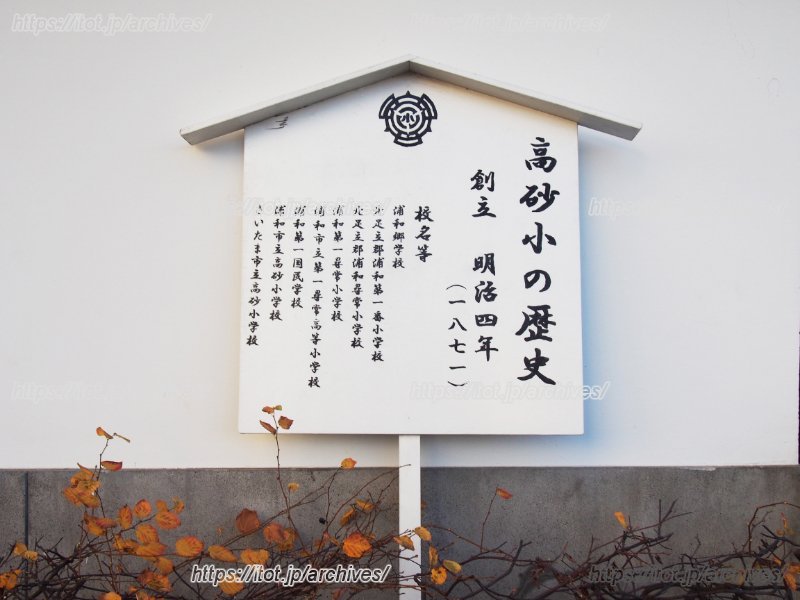 高砂小の歴史
創立 明治四年
(一八七一)
校名等
浦和郷学校
北足立郡浦和第一番小学校
北足立郡浦和尋常小学校
浦和第一尋常小学校
浦和市立第一尋常高等小学校
浦和第一国民学校
浦和市立高砂小学校
さいたま市立高砂小学校
小
https://itot.jp/archives/
https://itot.jp/archives/
https://itot.jp/archives/
https://itot.jp/archives/
https://itot.jp/archives/
https://itot.jp/archives/
https://itot.jp/archives/
https://itot.jp/archives/